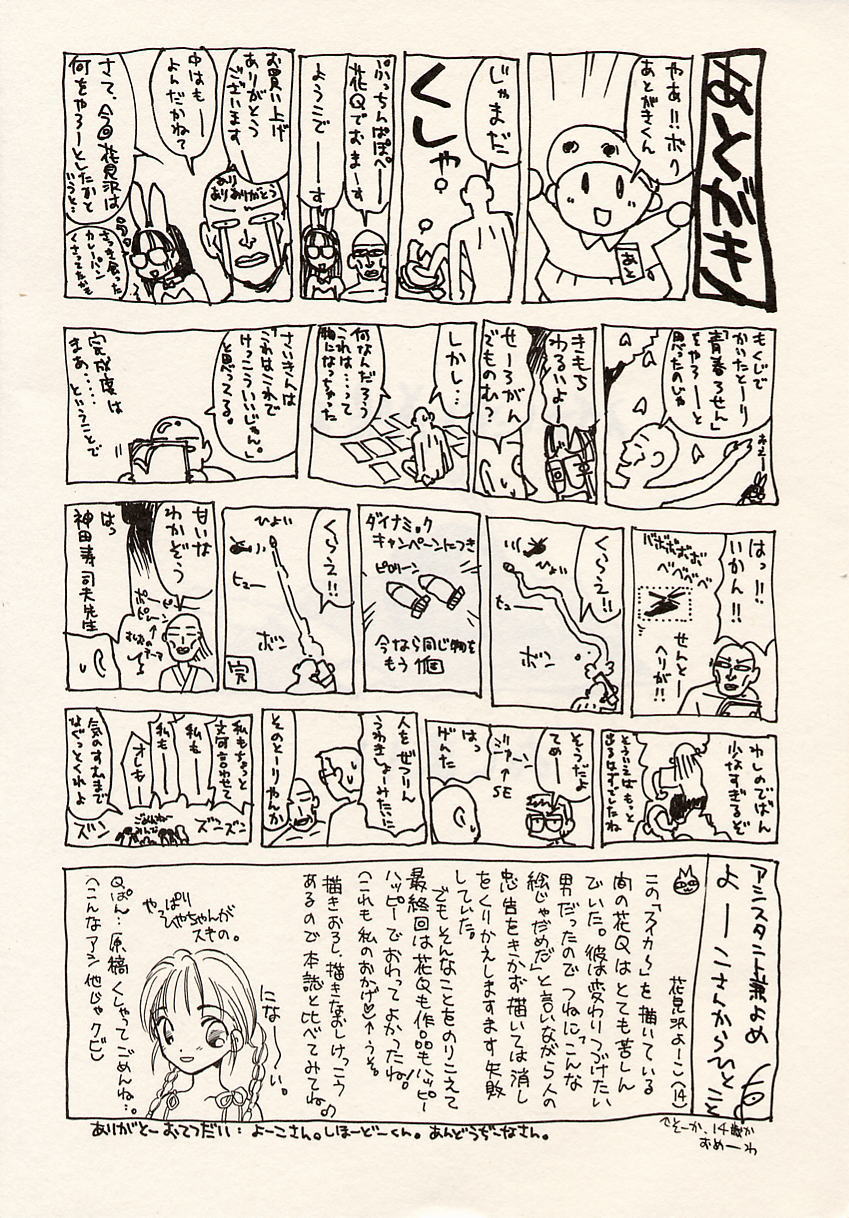 あとがき
やぁ!!ボク
あとがきくん
あと
じゃまだ
くしゃ
ぷっちんぱぽぺー
花Qでおまーす
ようこでーーす
お買い上げ
ありがとう
ございます
あり
ありありがとう
中はもーー
よんだかねて
さて、今回花見沢は
何をやろーとしたかと
いうと…
さっき食った
カレーパン
くさってたぞ
もくじで
かいたとーり
「青春ろせん」
をやろーーと
思ったのじゃ
きもち
わるいよー
せーろがん
でものむ?
しかし…
何なんだろう
これは…って
物になっちゃった
さいきんは
「これはこれで
けっこういいじゃん。」
と思ってくる。
完成度は
まあ‥‥
ということで
はっ!!
いかん!!
バボボボボボ
ベベベベベ
せんとー
ヘリが!!
くらえ!!
ひょい
ヒュー
ボン
ダイナミック
キャンペーンにつき
ピローン
今なら同じ物を
もう1個
くらえ!!
ひょい
ヒュー
ボン
完
甘いな
わかぞう
はっ
神田寿司夫先生
わしのでばん
少なすぎるぞ
そういえばもっと
出るはずでしたね
そうだよ
てめーー
ジャーン
↑
SE
はっ
げんた
人をぜつりん
うわきしょーみたいに
そのとーりやんか
私もちょっと
文句言わせて
私も
私も
オレも
ごめんねー
みんな
気のすむまで
なぐっとくれよ
ズンズン
ズン
アシスタント兼よめ
よーーこさんからひとこと
花見沢よーこ(14)
この「スイカら」を描いている
間の花Qはとても苦しん
でいた。彼は変わりつづけたい
男だったのでつねに「こんな
絵じゃだめだ」と言いながら人の
忠告をきかず描いては消し
をくりかえしますます失敗
していた。
でもそんなことをのりこえて
最終回は花Qも作品もハッピー
ハッピーでおわってよかったね!
(これも私のおかげ♡↑うそ。
描きおろし、描きなおしけっこう
あるので本誌と比べてみてね♪
になーーい。
やっぱり
ひやちゃんが
スキの。
Qぱん…原稿くしゃってごめんね…。
(こんなアシ他じゃクビ)
ありがとーおてつだい:よーこさん。しほーどーくん。あんどうぢーなさん。
てそーか、14歳か
おめーわ